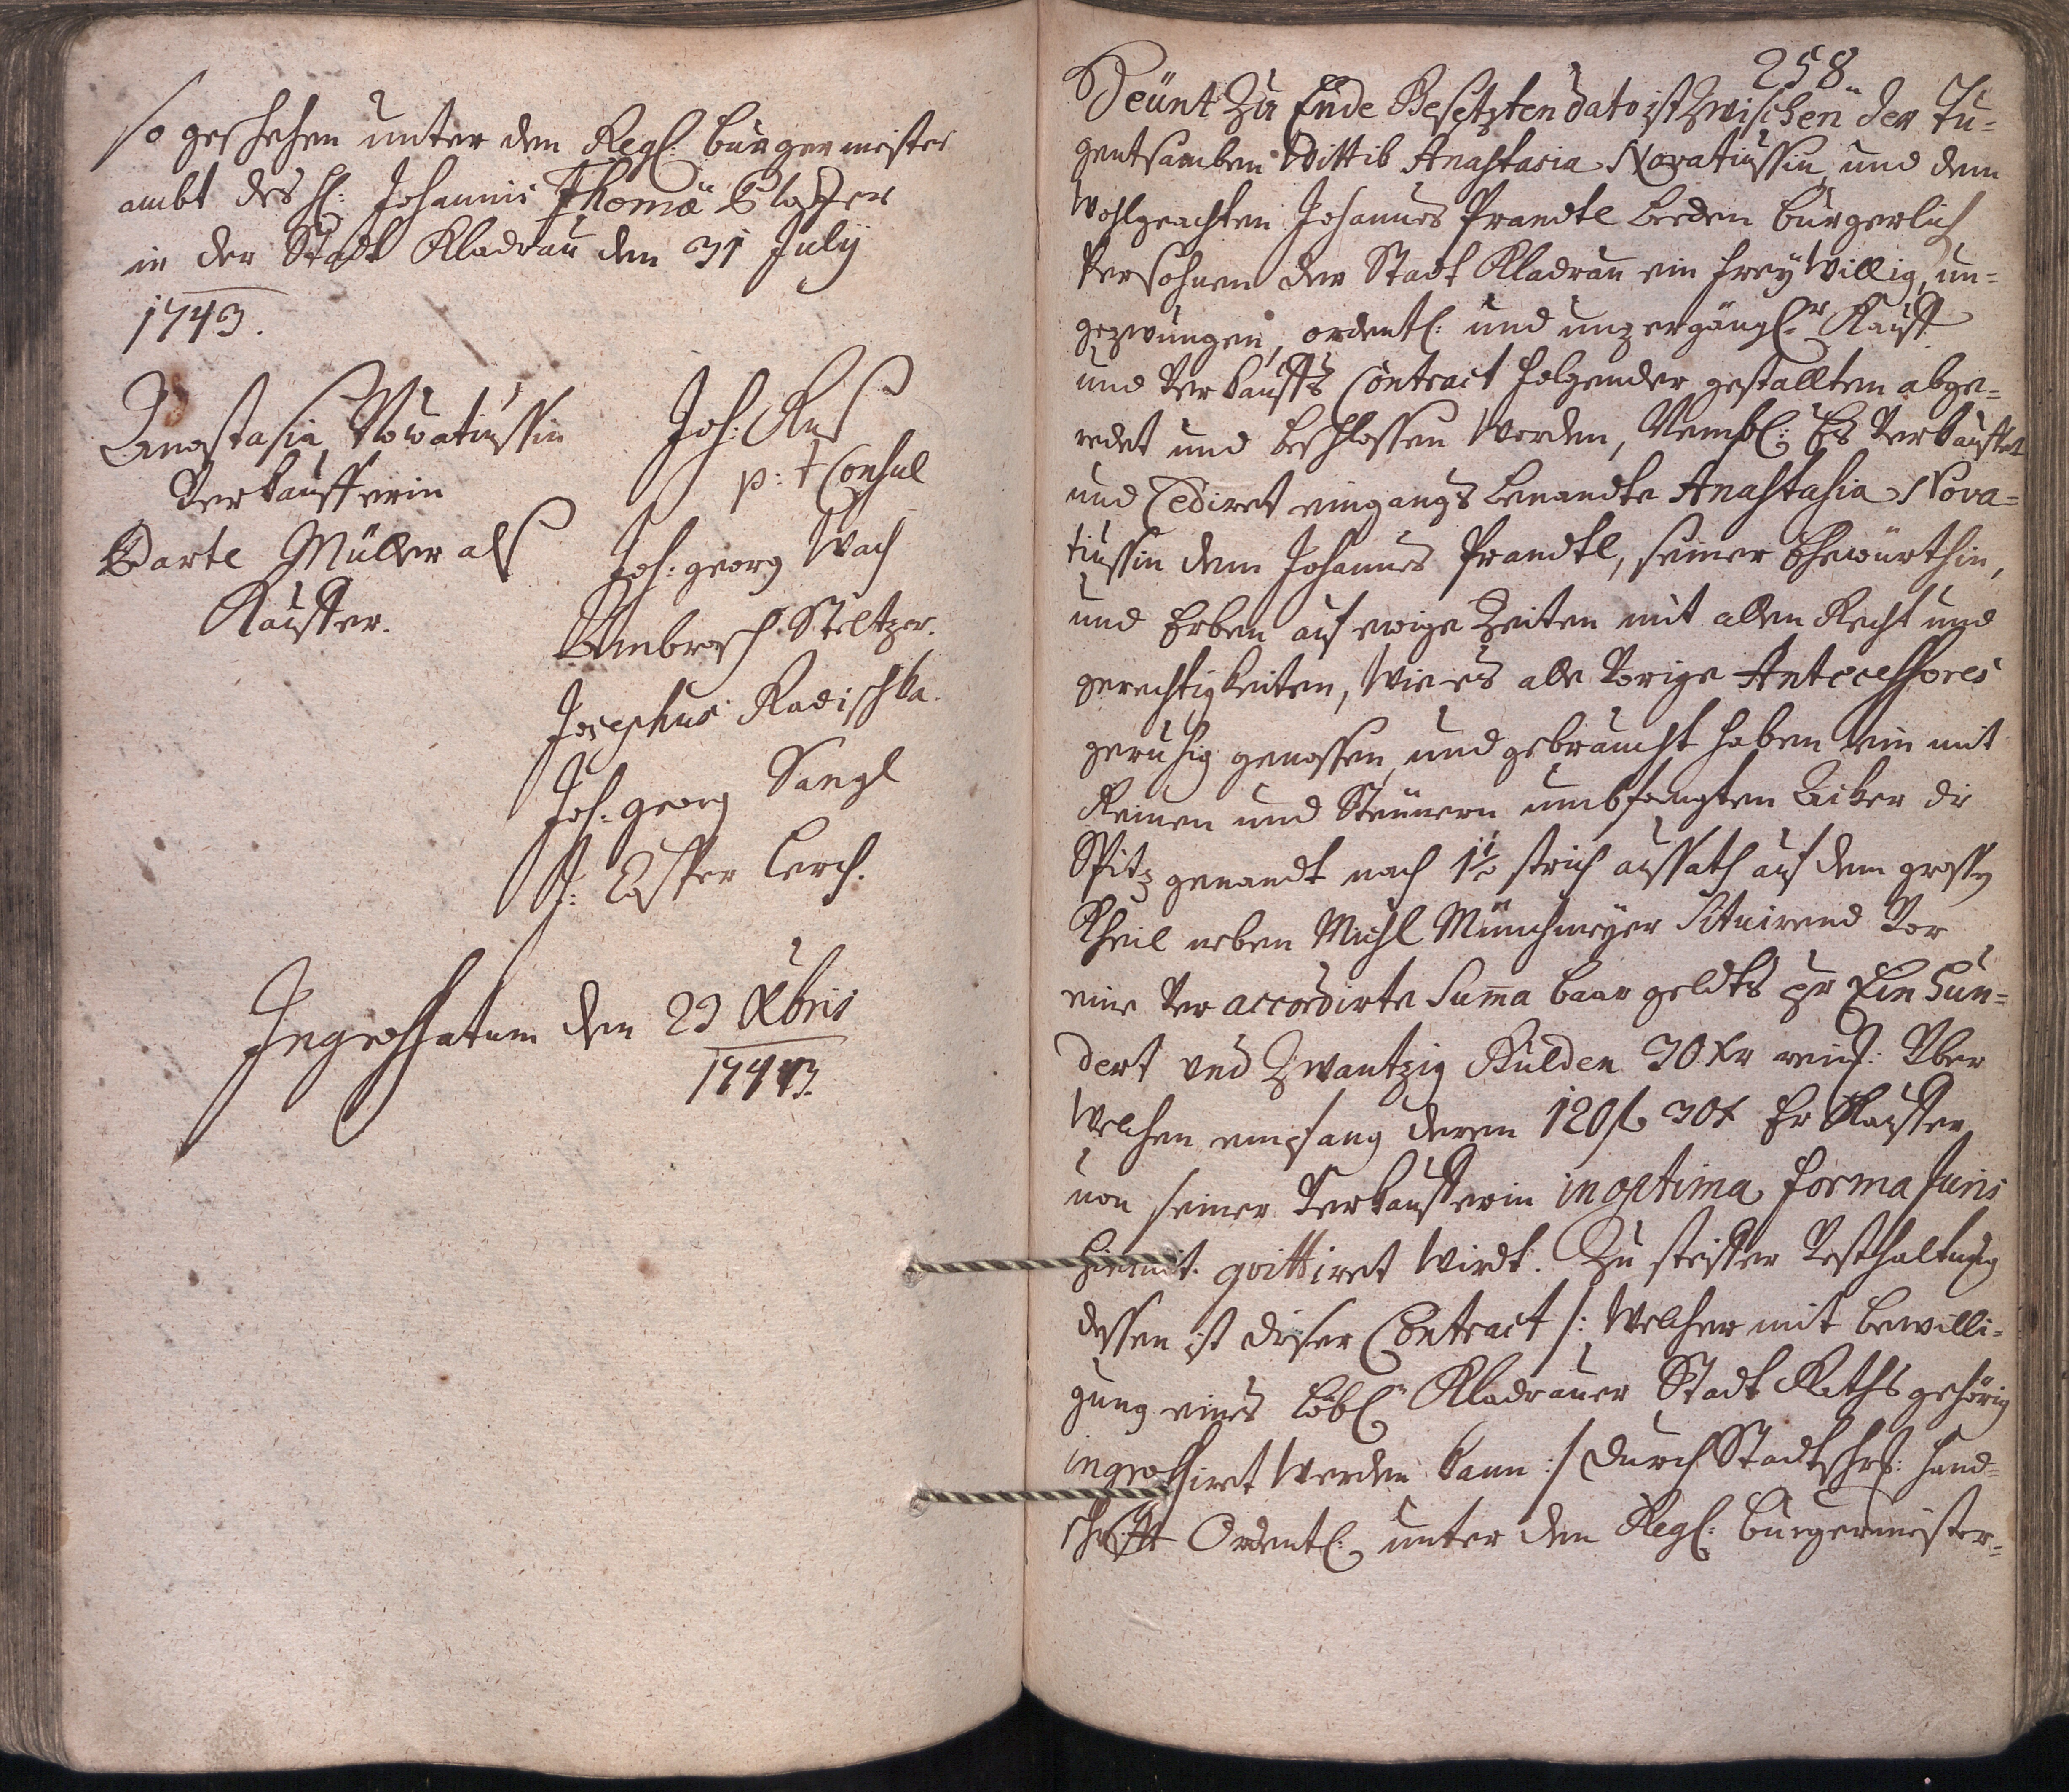 so geschehen unter den Regl: burgermeister
ambt des H: Johannis Thomä
in der Stadt Kladrau den 31 July
1743.
Anastasia Nowatiussin
Verkaufferin
Barte Müller als
Kauffer.
Joh:
p: t Consul
Joh: georg Wach
Ambrosch Steltzer.
Josephus Radischka.
Joh: georg Sangl
J: Lerch.
Ingrossatum den 29 Xbris
1743.
258
Heünt zu Ende Gesetzten dato ist zwischen der Tu-
gentsamben Wittib Anastasia Novatiussin, und dem
Wohlgeachten Johannes Prandtl beeden burgerlich
Persohnen der Stadt Kladrau ein freywillig, un-
gezwungen, ordentl: und unzergängl:r Kauff
und Verkauffs Contract folgender gestallten abge-
redet und beschlossen worden, Nembl: Es Verkauffet
und Cediret eingangs benandte Anastasia Nova-
tiussin dem Johannes Prandtl, seiner Ehewürthin,
und Erben auf ewige Zeiten mit allen Recht und
gerechtigkeiten, wie es alle Vorige Antecessores
geruhig genossen, und gebraucht haben ein mit
Reinen und Steinern umbfangten Acker die
Spitz genandt nach 1½ strich aussath auf dem grossen
Theil neben Michl Münchmeyer Situirend Vor
eine Ver accordirte Summa baar geldts pr Ein Hun-
dert und Zwantzig Gulden 30 Xr reinß: Über
welchen empfang deren 120 f 30 x Er Kauffer
von seiner Verkaufferin in optima forma Juris
hiemit quittiret wirdt. Zu steiffer Vesthaltung
dessen ist dieser Contract /: welcher mit bewilli-
gung eines löbl:n Kladrauer Stadt Raths gehörig
ingrossiret werden kann :/ durch Stadtschrß: Hand-
schrifft Ordentl: unter den Regl: burgermeister-